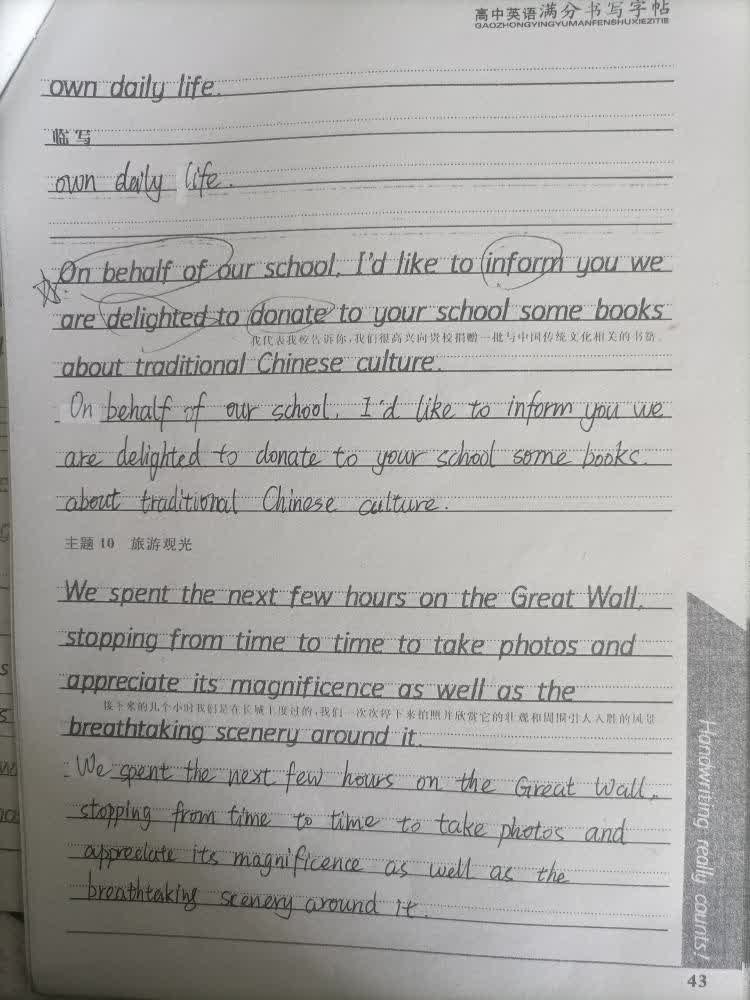 高中英语满分书写字帖
GAOZHONGYINGYUMANFENSHUXIEZITIE
own daily life.
临写
own daily life.
On behalf of our school, I'd like to inform you we
are delighted to donate to your school some books
我代表我校告诉你,我们很高兴向贵校捐赠一批与中国传统文化相关的书籍。
about traditional Chinese culture.
On behalf of our school, I'd like to inform you we
are delighted to donate to your school some books.
about traditional Chinese culture.
主题 10 旅游观光
We spent the next few hours on the Great Wall,
stopping from time to time to take photos and
appreciate its magnificence as well as the
接下来的几个小时我们是在长城上度过的,我们一次次停下来拍照并欣赏它的壮观和周围引人入胜的风景
breathtaking scenery around it.
We spent the next few hours on the Great Wall,
stopping from time to time to take photos and
appreciate its magnificence as well as the
breathtaking scenery around it.
Handwriting really counts!
43